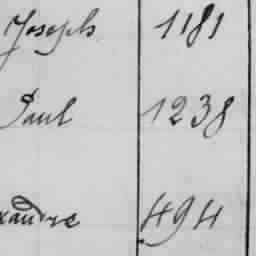 Joseph 1181
Paul 1238
xandre 494